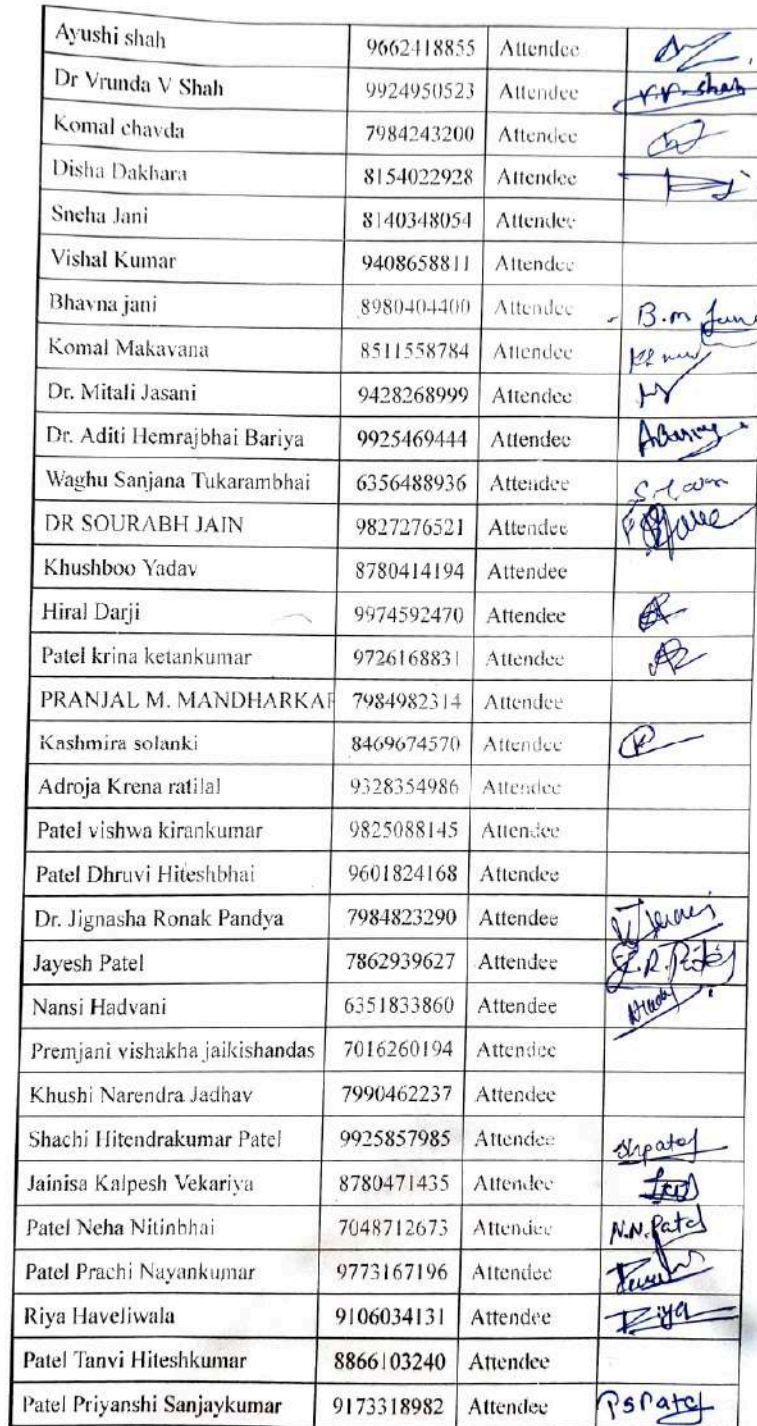 Ayushi shah 9662418855 Attendee
Dr Vrunda V Shah 9924950523 Attendee v.v.shah
Komal chavda 7984243200 Attendee
Disha Dakhara 8154022928 Attendee
Sneha Jani 8140348054 Attendee
Vishal Kumar 9408658811 Attendee
Bhavna jani 8980404400 Attendee B.m Jani
Komal Makavana 8511558784 Attendee
Dr. Mitali Jasani 9428268999 Attendee
Dr. Aditi Hemrajbhai Bariya 9925469444 Attendee
Waghu Sanjana Tukarambhai 6356488936 Attendee
DR SOURABH JAIN 9827276521 Attendee
Khushboo Yadav 8780414194 Attendee
Hiral Darji 9974592470 Attendee
Patel krina ketankumar 9726168831 Attendee
PRANJAL M. MANDHARKAR 7984982314 Attendee
Kashmira solanki 8469674570 Attendee
Adroja Krena ratilal 9328354986 Attendee
Patel vishwa kirankumar 9825088145 Attendee
Patel Dhruvi Hiteshbhai 9601824168 Attendee
Dr. Jignasha Ronak Pandya 7984823290 Attendee
Jayesh Patel 7862939627 Attendee J.R.Patel
Nansi Hadvani 6351833860 Attendee
Premjani vishakha jaikishandas 7016260194 Attendee
Khushi Narendra Jadhav 7990462237 Attendee
Shachi Hitendrakumar Patel 9925857985 Attendee shpatel
Jainisa Kalpesh Vekariya 8780471435 Attendee
Patel Neha Nitinbhai 7048712673 Attendee N.N.Patel
Patel Prachi Nayankumar 9773167196 Attendee
Riya Haveliwala 9106034131 Attendee Riya
Patel Tanvi Hiteshkumar 8866103240 Attendee
Patel Priyanshi Sanjaykumar 9173318982 Attendee PSPatel